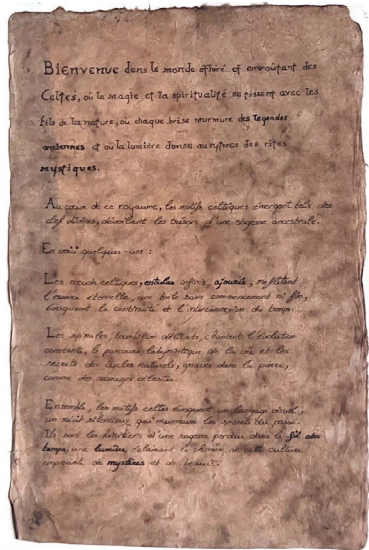 Bienvenue dans le monde éthéré et envoûtant des
Celtes, où la magie et la spiritualité se tissent avec les
fils de la nature, où chaque brise murmure des légendes
anciennes et où la lumière danse au rythme des rites
mystiques.
Au cœur de ce royaume, les motifs celtiques émergent tels des
clef divines, dévoilant les trésors d'une sagesse ancestrale.
En voici quelques-uns :
Les nœuds celtiques, entrelacs infinis, ajourés, reflètent
l'essence éternelle, une toile sans commencement ni fin,
évoquant la continuité et l'interconnexion du temps.
Les spirales, tourbillon délicats, chantent l'évolution
constante, le parcours labyrinthique de la vie et les
secrets des cycles naturels, gravés dans la pierre,
comme des messages célestes.
Ensemble, les motifs celtes évoquent un langage visuel,
un récit silencieux qui murmure les secrets du passé.
Ils sont les d'une sagesse perdue dans le fil du
temps, une lumière éclairant le chemin de cette culture
empreinte de mystères et de beauté.